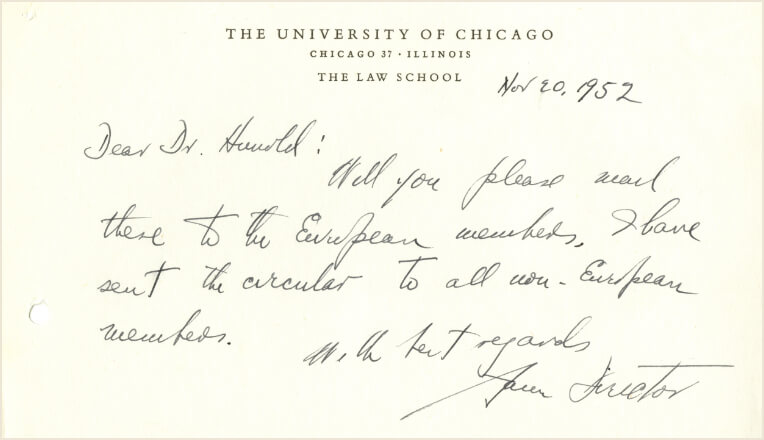 THE UNIVERSITY OF CHICAGO
CHICAGO 37 · ILLINOIS
THE LAW SCHOOL
Nov 20, 1952
Dear Dr. Hunold:
Will you please mail
these to the European members. I have
sent the circular to all non-European
members.
With best regards
Aaron Director